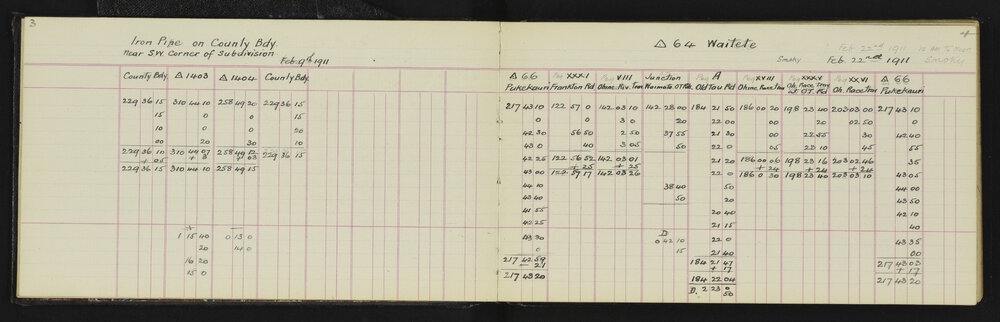 3
Iron Pipe on County Bdy.
Near S.W. Corner of Subdivision
Feb. 9th 1911
County Bdy. △ 1403 △ 1404 County Bdy.
229 36 15 310 44 10 258 49 20 229 36 15
15 0 0 15
10 0 0 20
00 20 30 10
229 36 10 310 44 07 258 49 12 229 36 15
+ 05 + 3 + 03
229 36 15 310 44 10 258 49 15
1 15 40 0 13 0
20 14 0
16 20
15 0
4
△ 64 Waitete
Feb 22nd 1911
Smoky Feb 22nd 1911 Smoky
△ 66 Peg XXXI Peg VIII Junction Peg A Peg XVIII Peg XXXV Peg XXVI △ 66
Pukekauri Frankton Rd Ohine. Riv. Trav Waimata OT Rds Old Tau Rd Ohine. Race Trav Oh. Race Trav Wt OT Rd Oh. Race Trav Pukekauri
217 43 10 122 57 0 142 03 10 142 28 00 184 21 50 186 00 20 198 23 40 203 03 00 217 43 10
0 0 3 0 20 22 00 00 20 02 50 0
42 30 56 50 2 50 37 55 21 30 00 22 55 30 42 40
43 0 40 3 05 50 22 0 05 23 10 45 55
42 25 122 56 52 142 03 01 21 20 186 00 06 198 23 16 203 02 46 35
+ 25 + 25 + 24 + 24 + 24
43 00 122 57 17 142 03 26 22 0 186 0 30 198 23 40 203 03 10 43 05
44 10 38 40 50 44 00
43 40 50 20 43 50
41 55 20 40 42 10
42 25 21 15 40
43 30 D 0 42 10 22 0 43 35
0 15 21 40 00
217 42 59 184 21 47 217 43 03
+ 21 + 17 + 17
217 43 20 184 22 04 217 43 20
D. 2 23 0
50